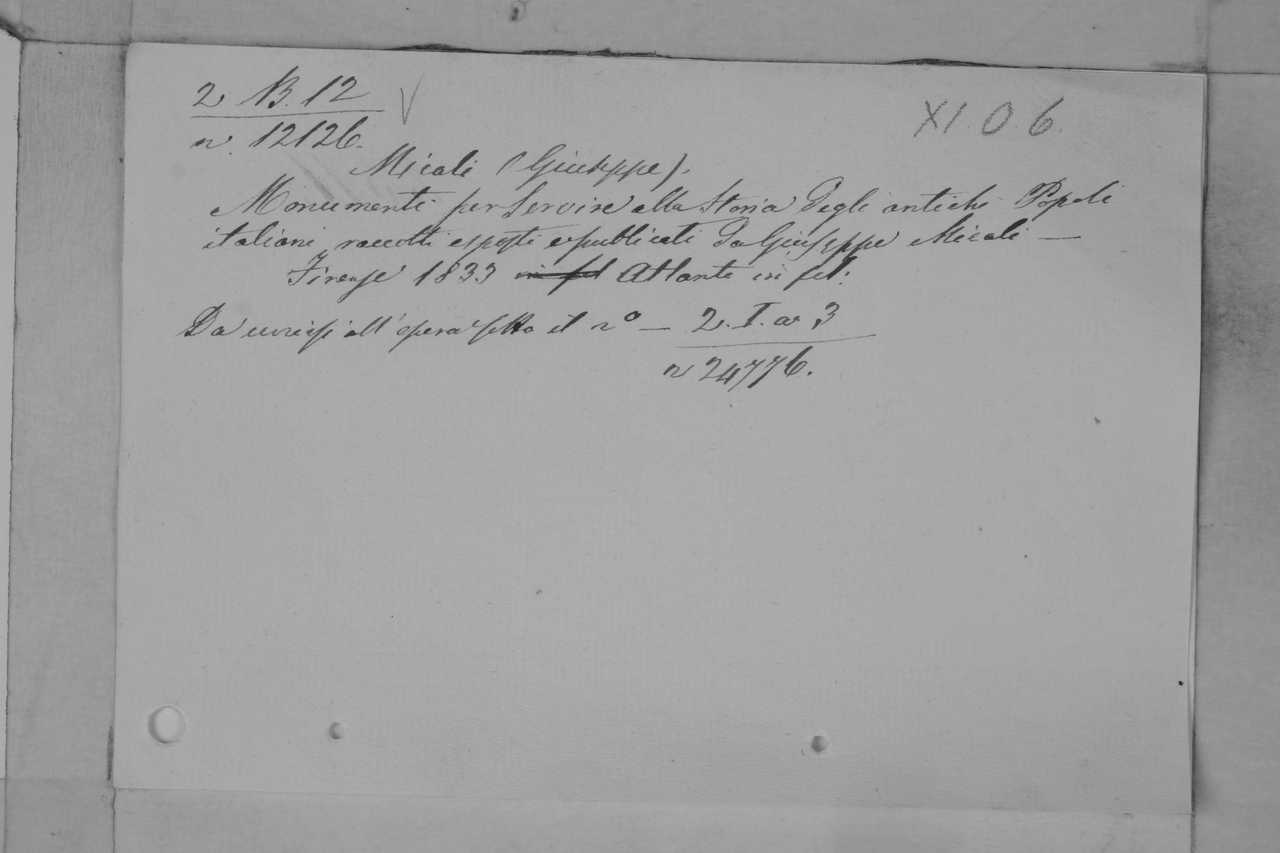 2 B. 12
n. 12126.
XI. O. 6.
Micali (Giuseppe).
Monumenti per servire alla Storia degli antichi Popoli
italiani, raccolti esposti e publicati da Giuseppe Micali —
Firenze 1833 in fol Atlante in fol:
Da unirsi all'opera sotto il n° — 2. I. a 3
n 24776.